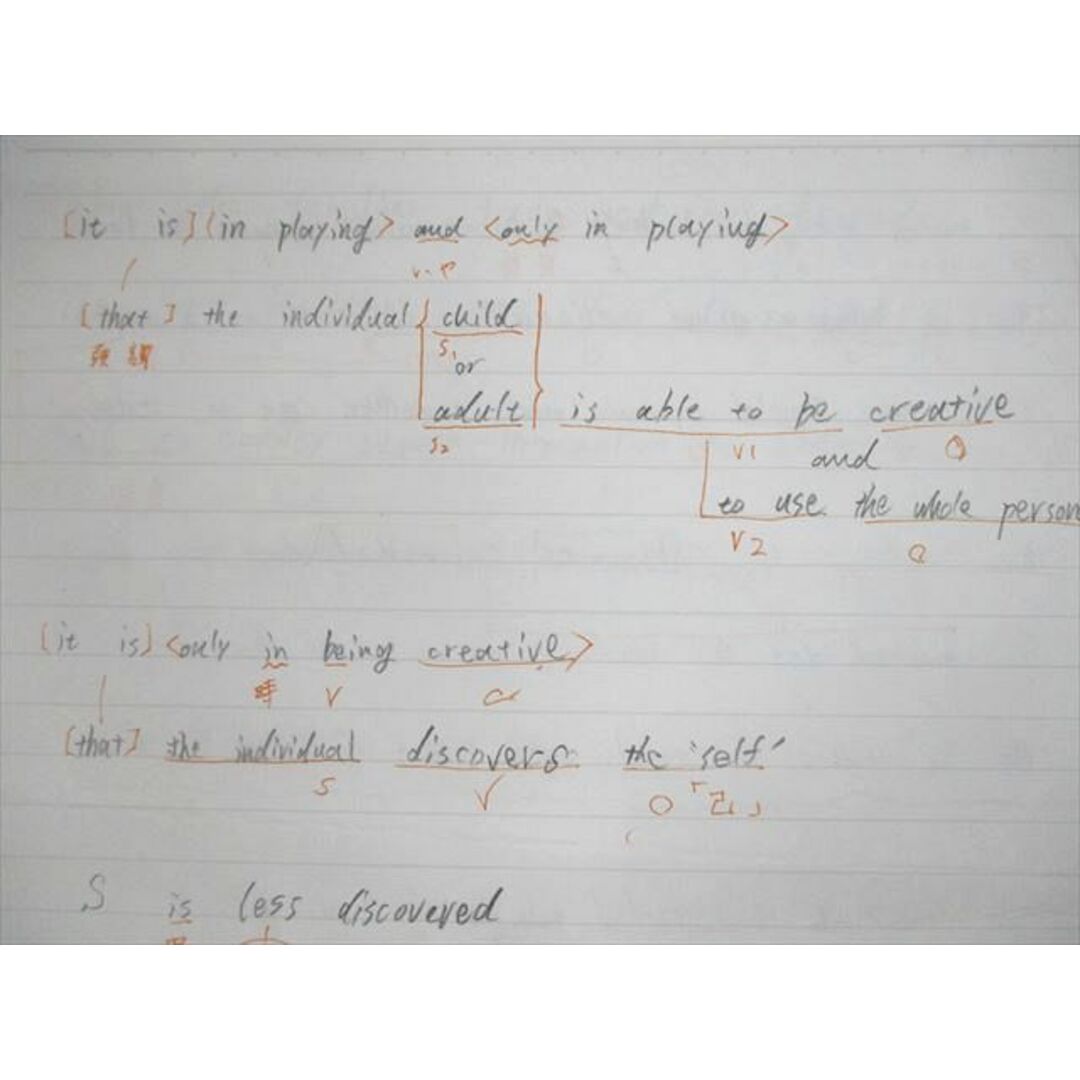 [it is] <in playing> and <only in playing>
[that] the individual { child
S1
or
adult } is able to be creative
S2
V1 and
to use the whole person
V2
[it is] <only in being creative>
V C
[that] the individual discovers the 'self'
S V O 「己」
S is less discovered